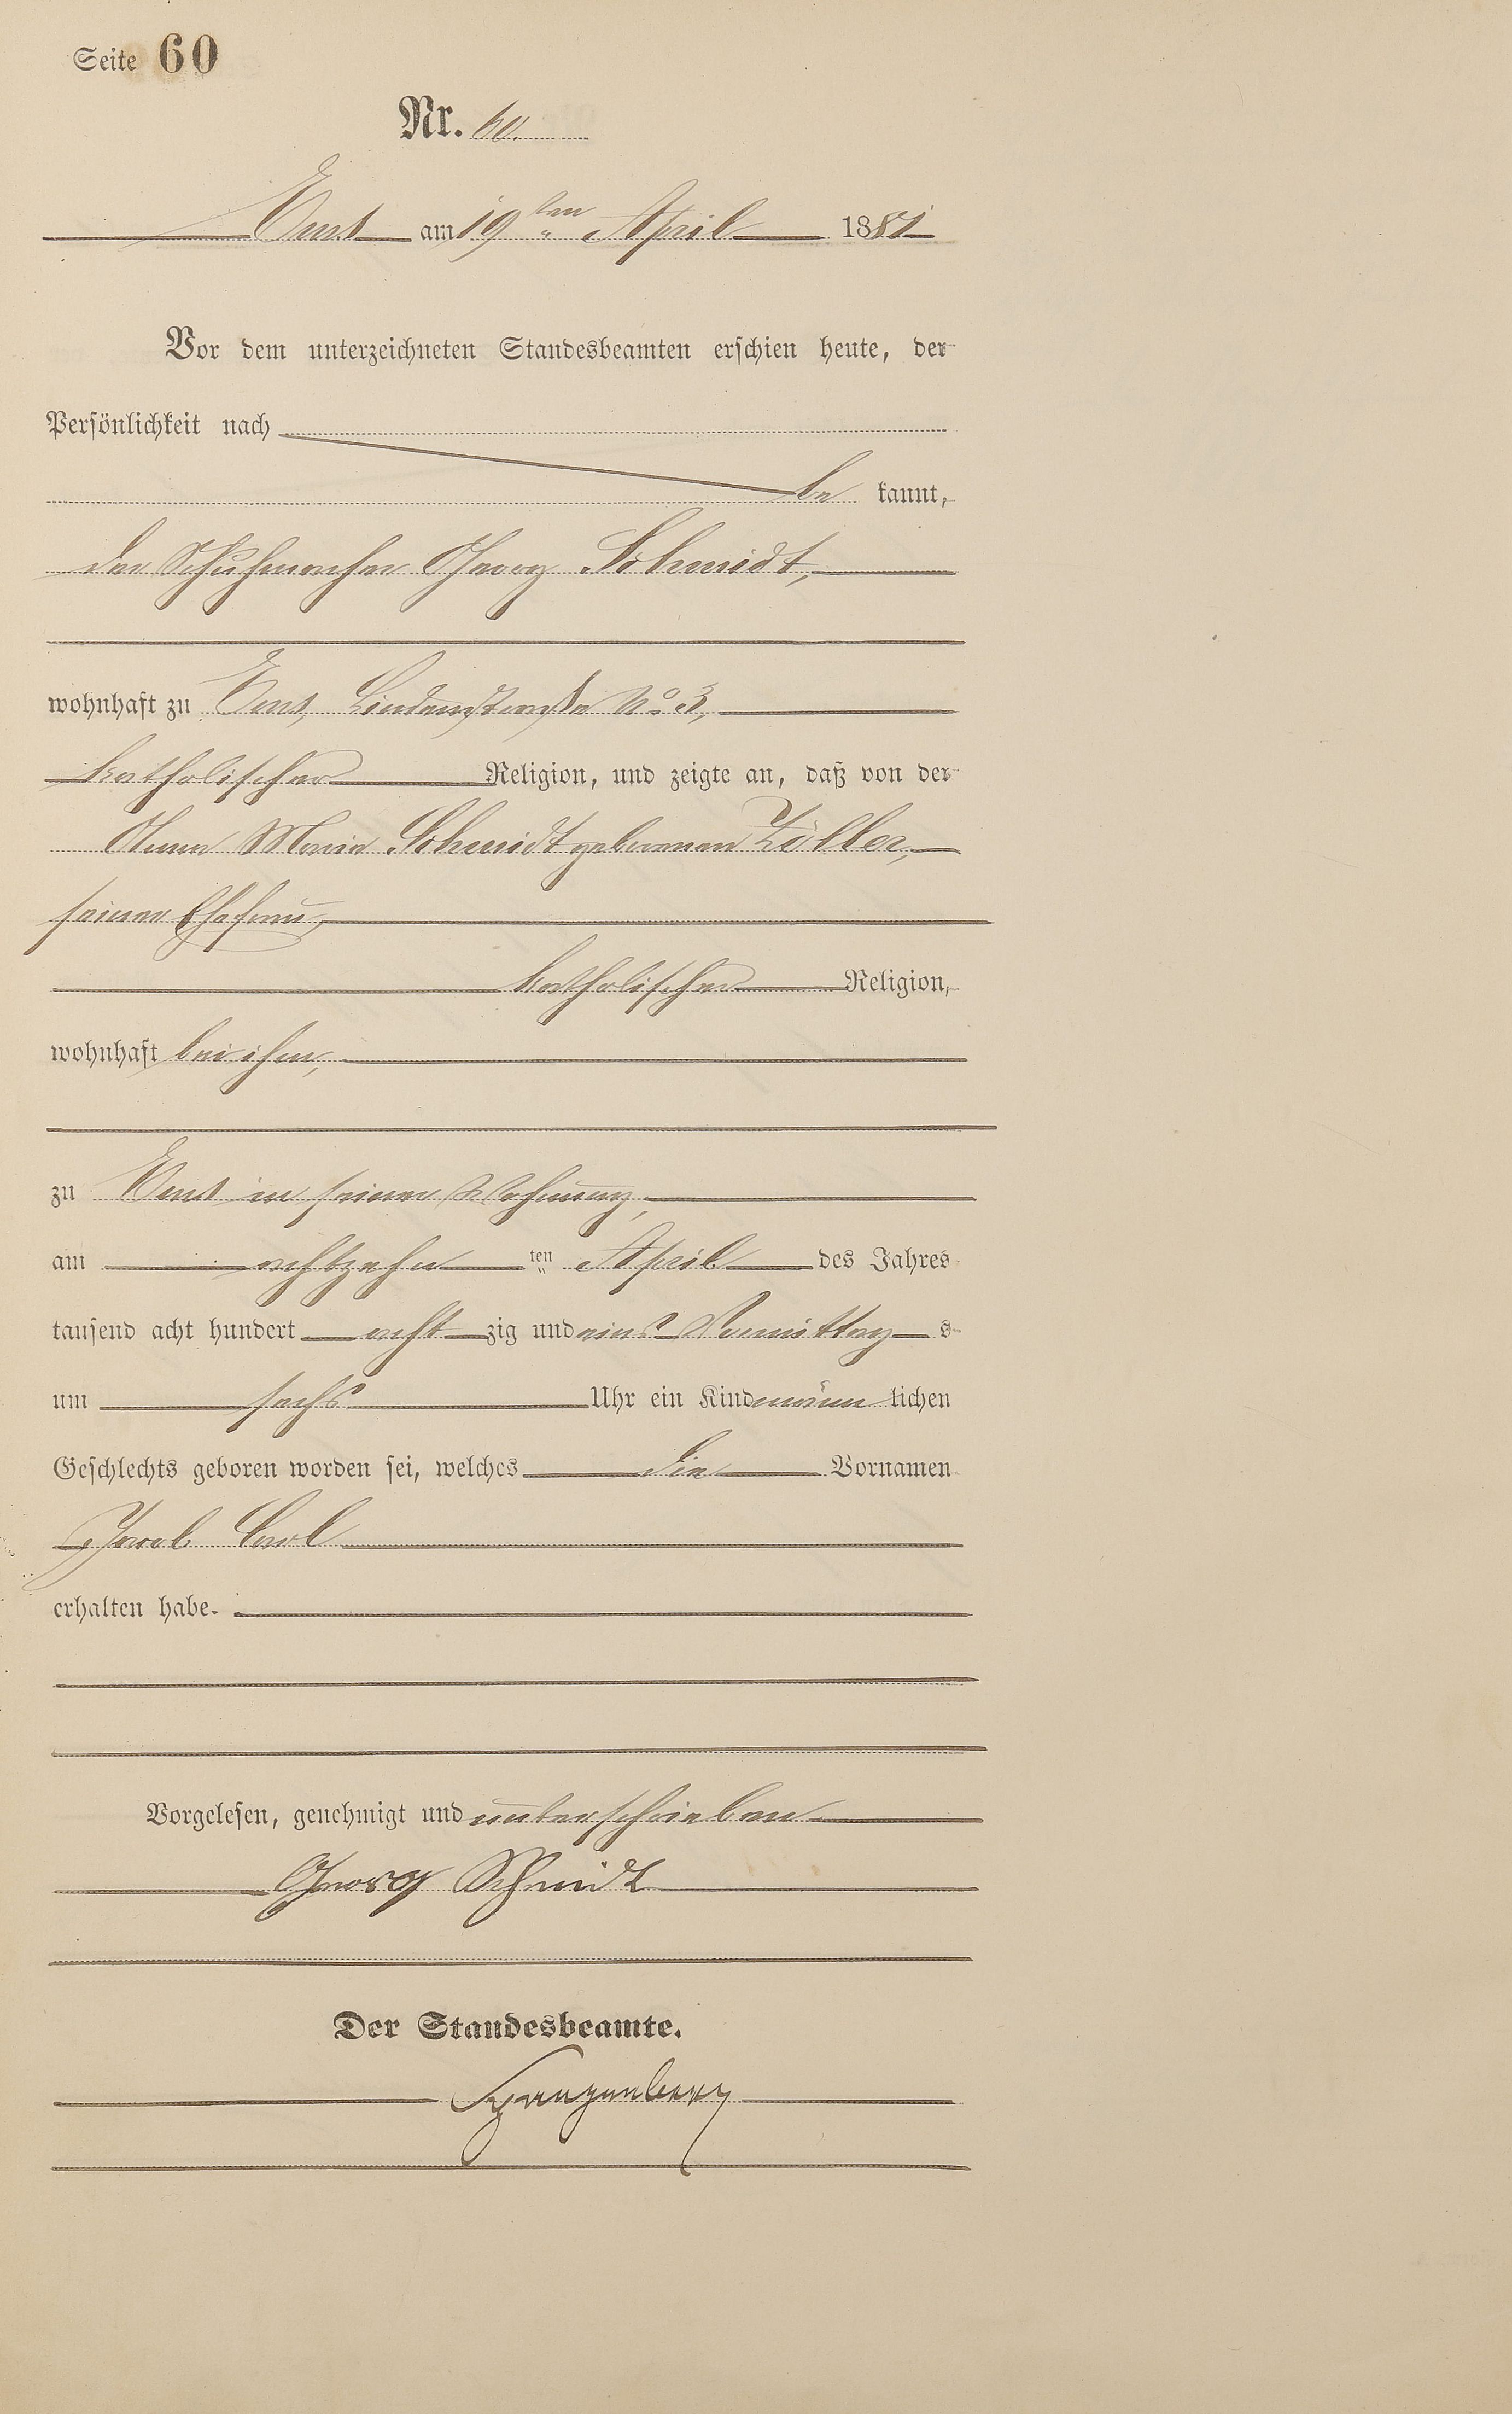 Seite 60
Nr. 60.
Ems am 19ten April 1881
Vor dem unterzeichneten Standesbeamten erschien heute, der
Persönlichkeit nach
be kannt,
der Schuhmacher Georg Schmidt,
wohnhaft zu Ems, Lindenstraße No 3,
katholischer Religion, und zeigte an, daß von der
Anna Maria Schmidt geborenen Zöller,
seiner Ehefrau,
katholischer Religion,
wohnhaft bei ihm,
zu Ems in seiner Wohnung,
am achtzehn ten April des Jahres
tausend acht hundert acht zig und eins Vormittag s
um sechs Uhr ein Kind männ lichen
Geschlechts geboren worden sei, welches die Vornamen
Jacob Carl
erhalten habe.
Vorgelesen, genehmigt und unterschrieben.
Georg Schmidt
Der Standesbeamte.
Spangenberg